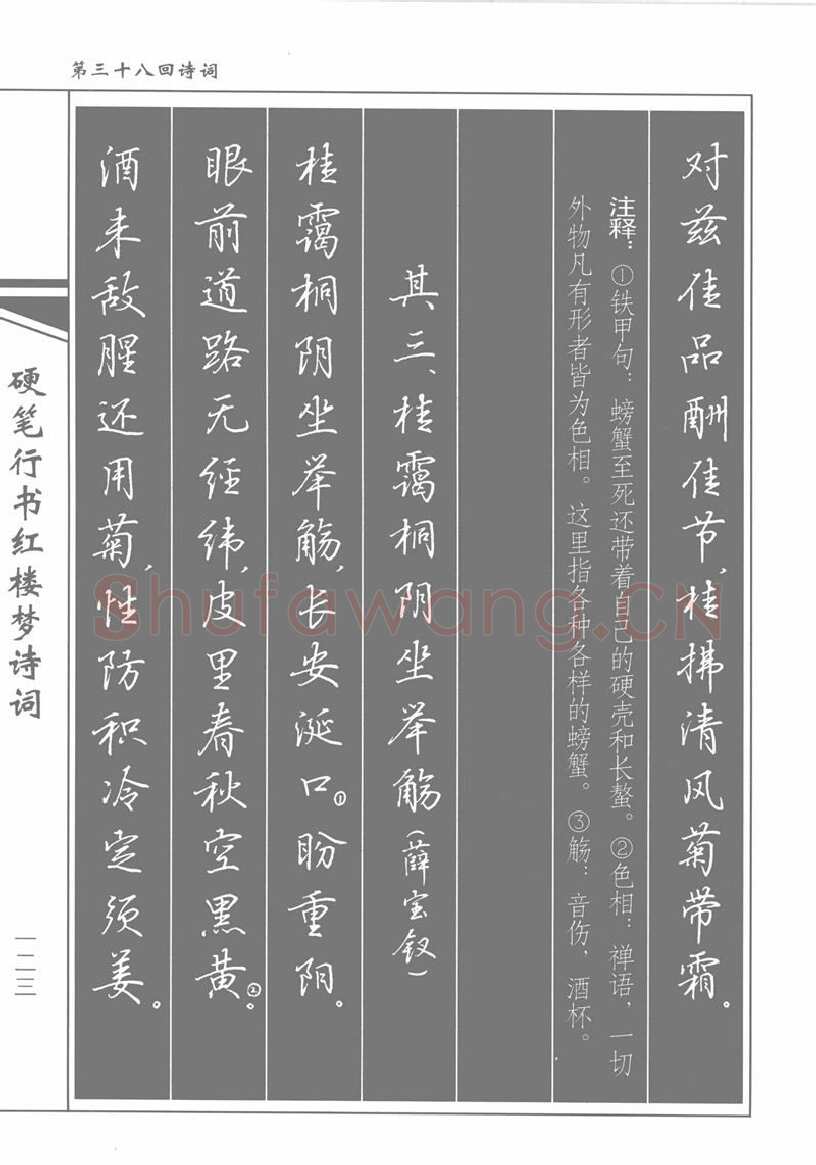 第三十八回诗词
对兹佳品酬佳节，桂拂清风菊带霜。
注释：①铁甲句：螃蟹至死还带着自己的硬壳和长螯。②色相：禅语，一切
外物凡有形者皆为色相。这里指各种各样的螃蟹。③觞：音伤，酒杯。
其三、桂霭桐阴坐举觞（薛宝钗）
桂霭桐阴坐举觞，长安涎口①盼重阳。
眼前道路无经纬，皮里春秋空黑黄②。
酒未敌腥还用菊，性防积冷定须姜。
硬笔行书红楼梦诗词
一二三
Shufawang.CN